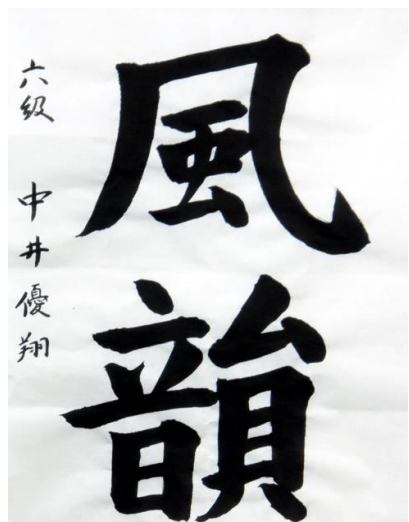 風韻
六級 中井優翔